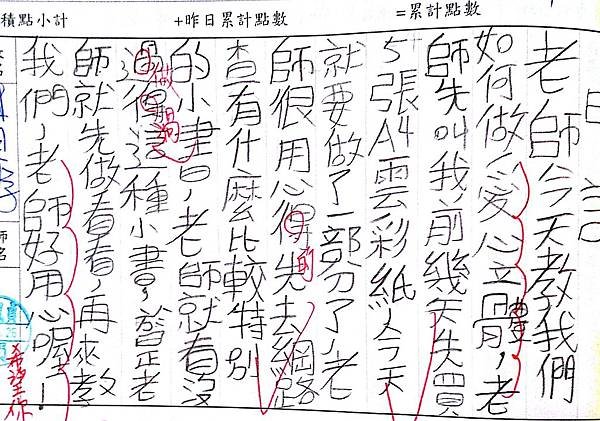 積點小計 +昨日累計點數 =累計點數
日記
老師今天教我們
如何做愛心立體,老
師先叫我前幾天先買
5張A4雲彩紙,今天
就要做了一部分了,老
師很用心得先去網路
的
查有什麼比較特別
的小書,老師就看沒
做過的
過得這種小書,於是老
師就先做看看,再來教
我們,老師好用心喔!
希望你